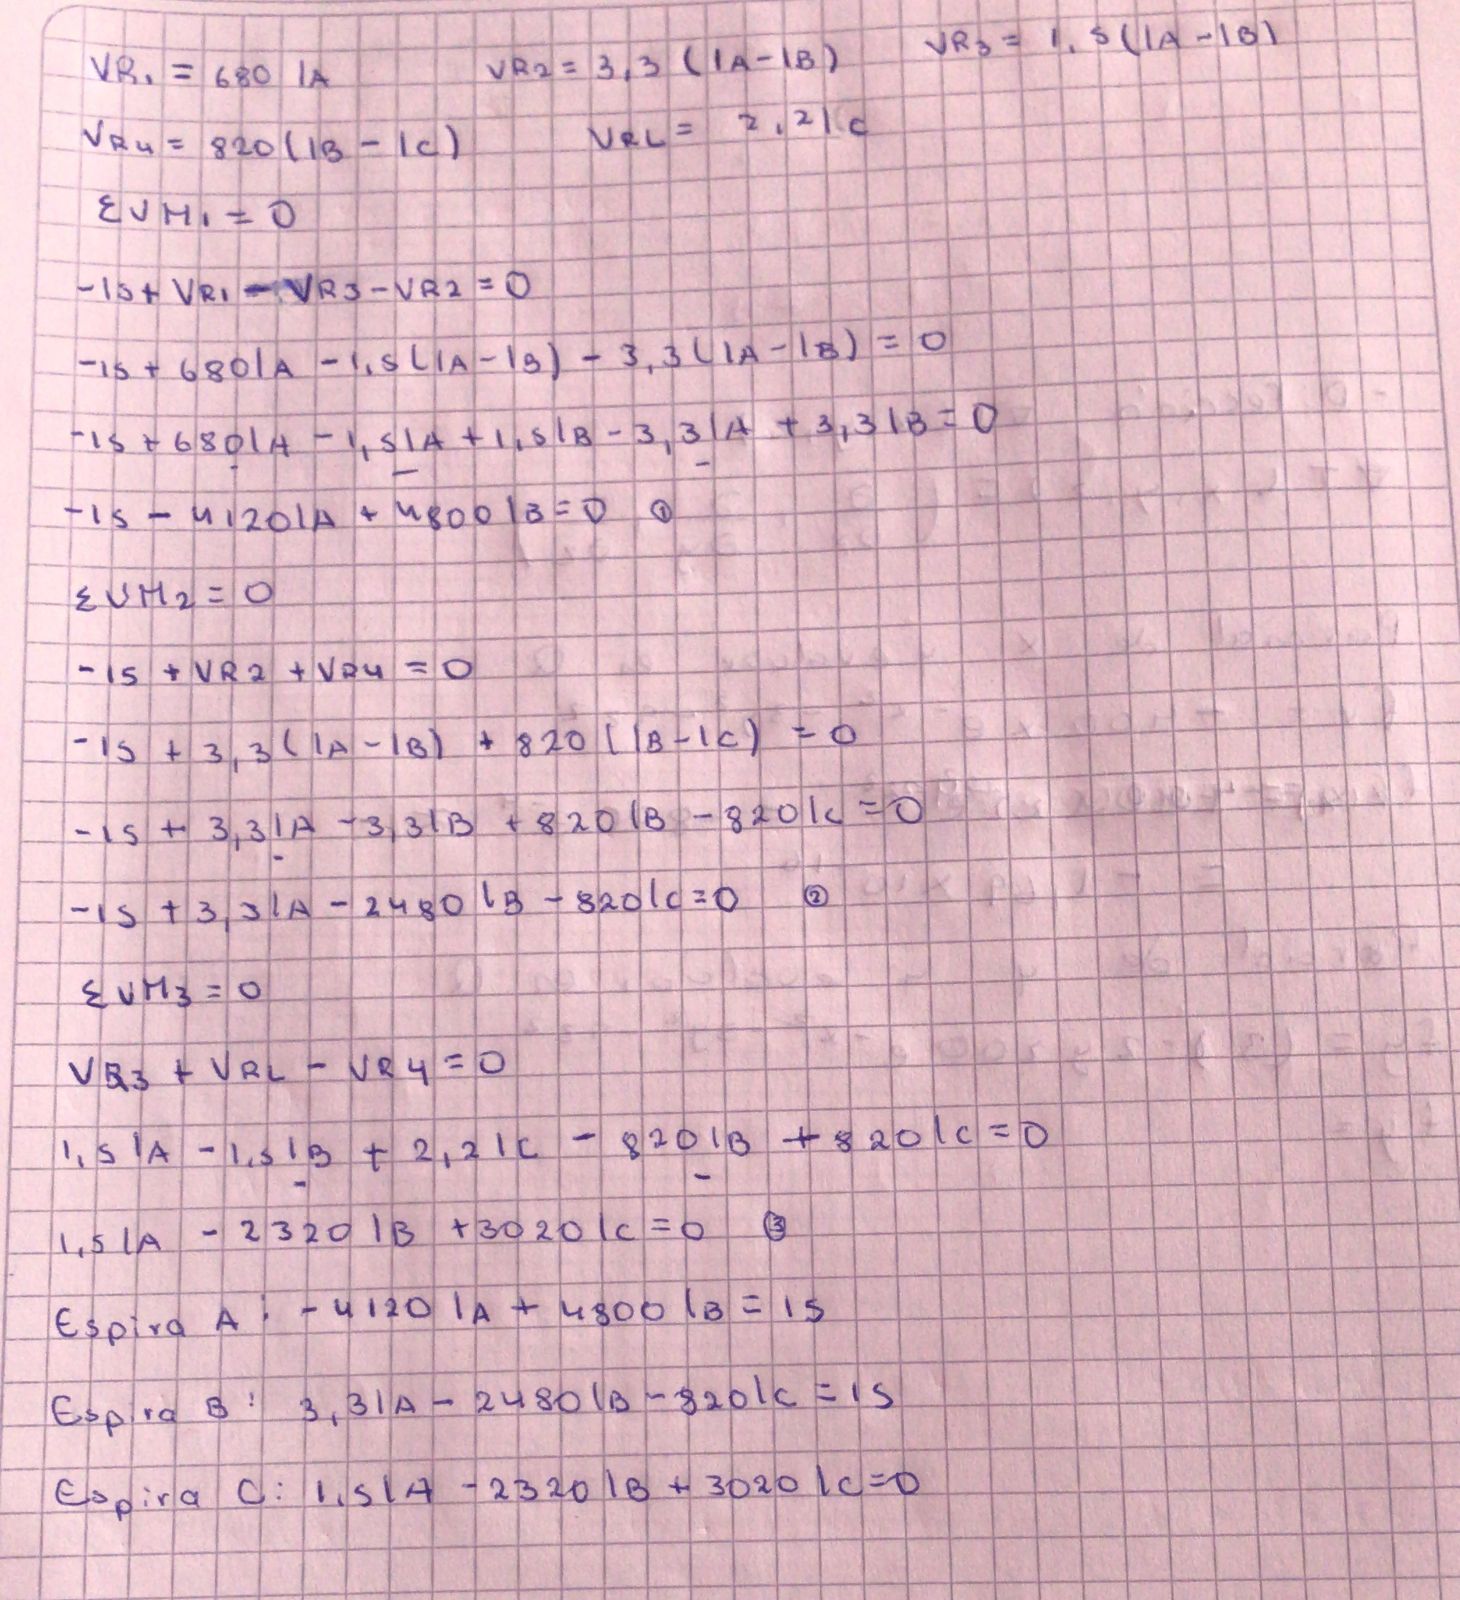 VR1 = 680 IA VR2 = 3,3 (IA-IB) VR3 = 1,5(IA-IB)
VR4 = 820(IB - IC) VRL = 2,2IC
ΣVM1 = 0
-15+ VR1 - VR3-VR2 = 0
-15 + 680IA - 1,5(IA-IB) - 3,3(IA-IB) = 0
-15 + 680IA - 1,5IA + 1,5IB - 3,3IA + 3,3IB = 0
-15 - 4120IA + 4800IB = 0 ①
ΣVM2 = 0
-15 + VR2 + VR4 = 0
-15 + 3,3(IA-IB) + 820(IB-IC) = 0
-15 + 3,3IA - 3,3IB + 820IB - 820IC = 0
-15 + 3,3IA - 2480IB - 820IC = 0 ②
ΣVM3 = 0
VR3 + VRL - VR4 = 0
1,5IA - 1,5IB + 2,2IC - 820IB + 820IC = 0
1,5IA - 2320IB + 3020IC = 0 ③
Espira A: -4120IA + 4800IB = 15
Espira B: 3,3IA - 2480IB - 820IC = 15
Espira C: 1,5IA - 2320IB + 3020IC = 0